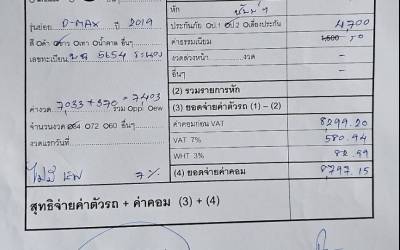 หัก
รุ่นย่อย D-MAX ปี 2019
ประกันภัย ป.1 ป.2 เลี่ยงประกัน 4,700
สี ดำ ขาว เทา น้ำตาล อื่นๆ
ค่าธรรมเนียม 1,500 50
เลขทะเบียน 5654 ระนอง
งวดล่วงหน้า งวด -
อื่นๆ -
(2) รวมรายการหัก
ค่างวด 7,033 + 370 = 7,403 รวม Opp Oew
(3) ยอดจ่ายค่าตัวรถ (1) - (2)
จำนวนงวด 84 72 60 อื่นๆ
ค่าคอมก่อน VAT 8,299.20
งวดแรกวันที่
VAT 7% 580.94
WHT 3% 82.99
ไม่มี 7%
(4) ยอดจ่ายค่าคอม 8,797.15
สุทธิจ่ายค่าตัวรถ + ค่าคอม (3) + (4)